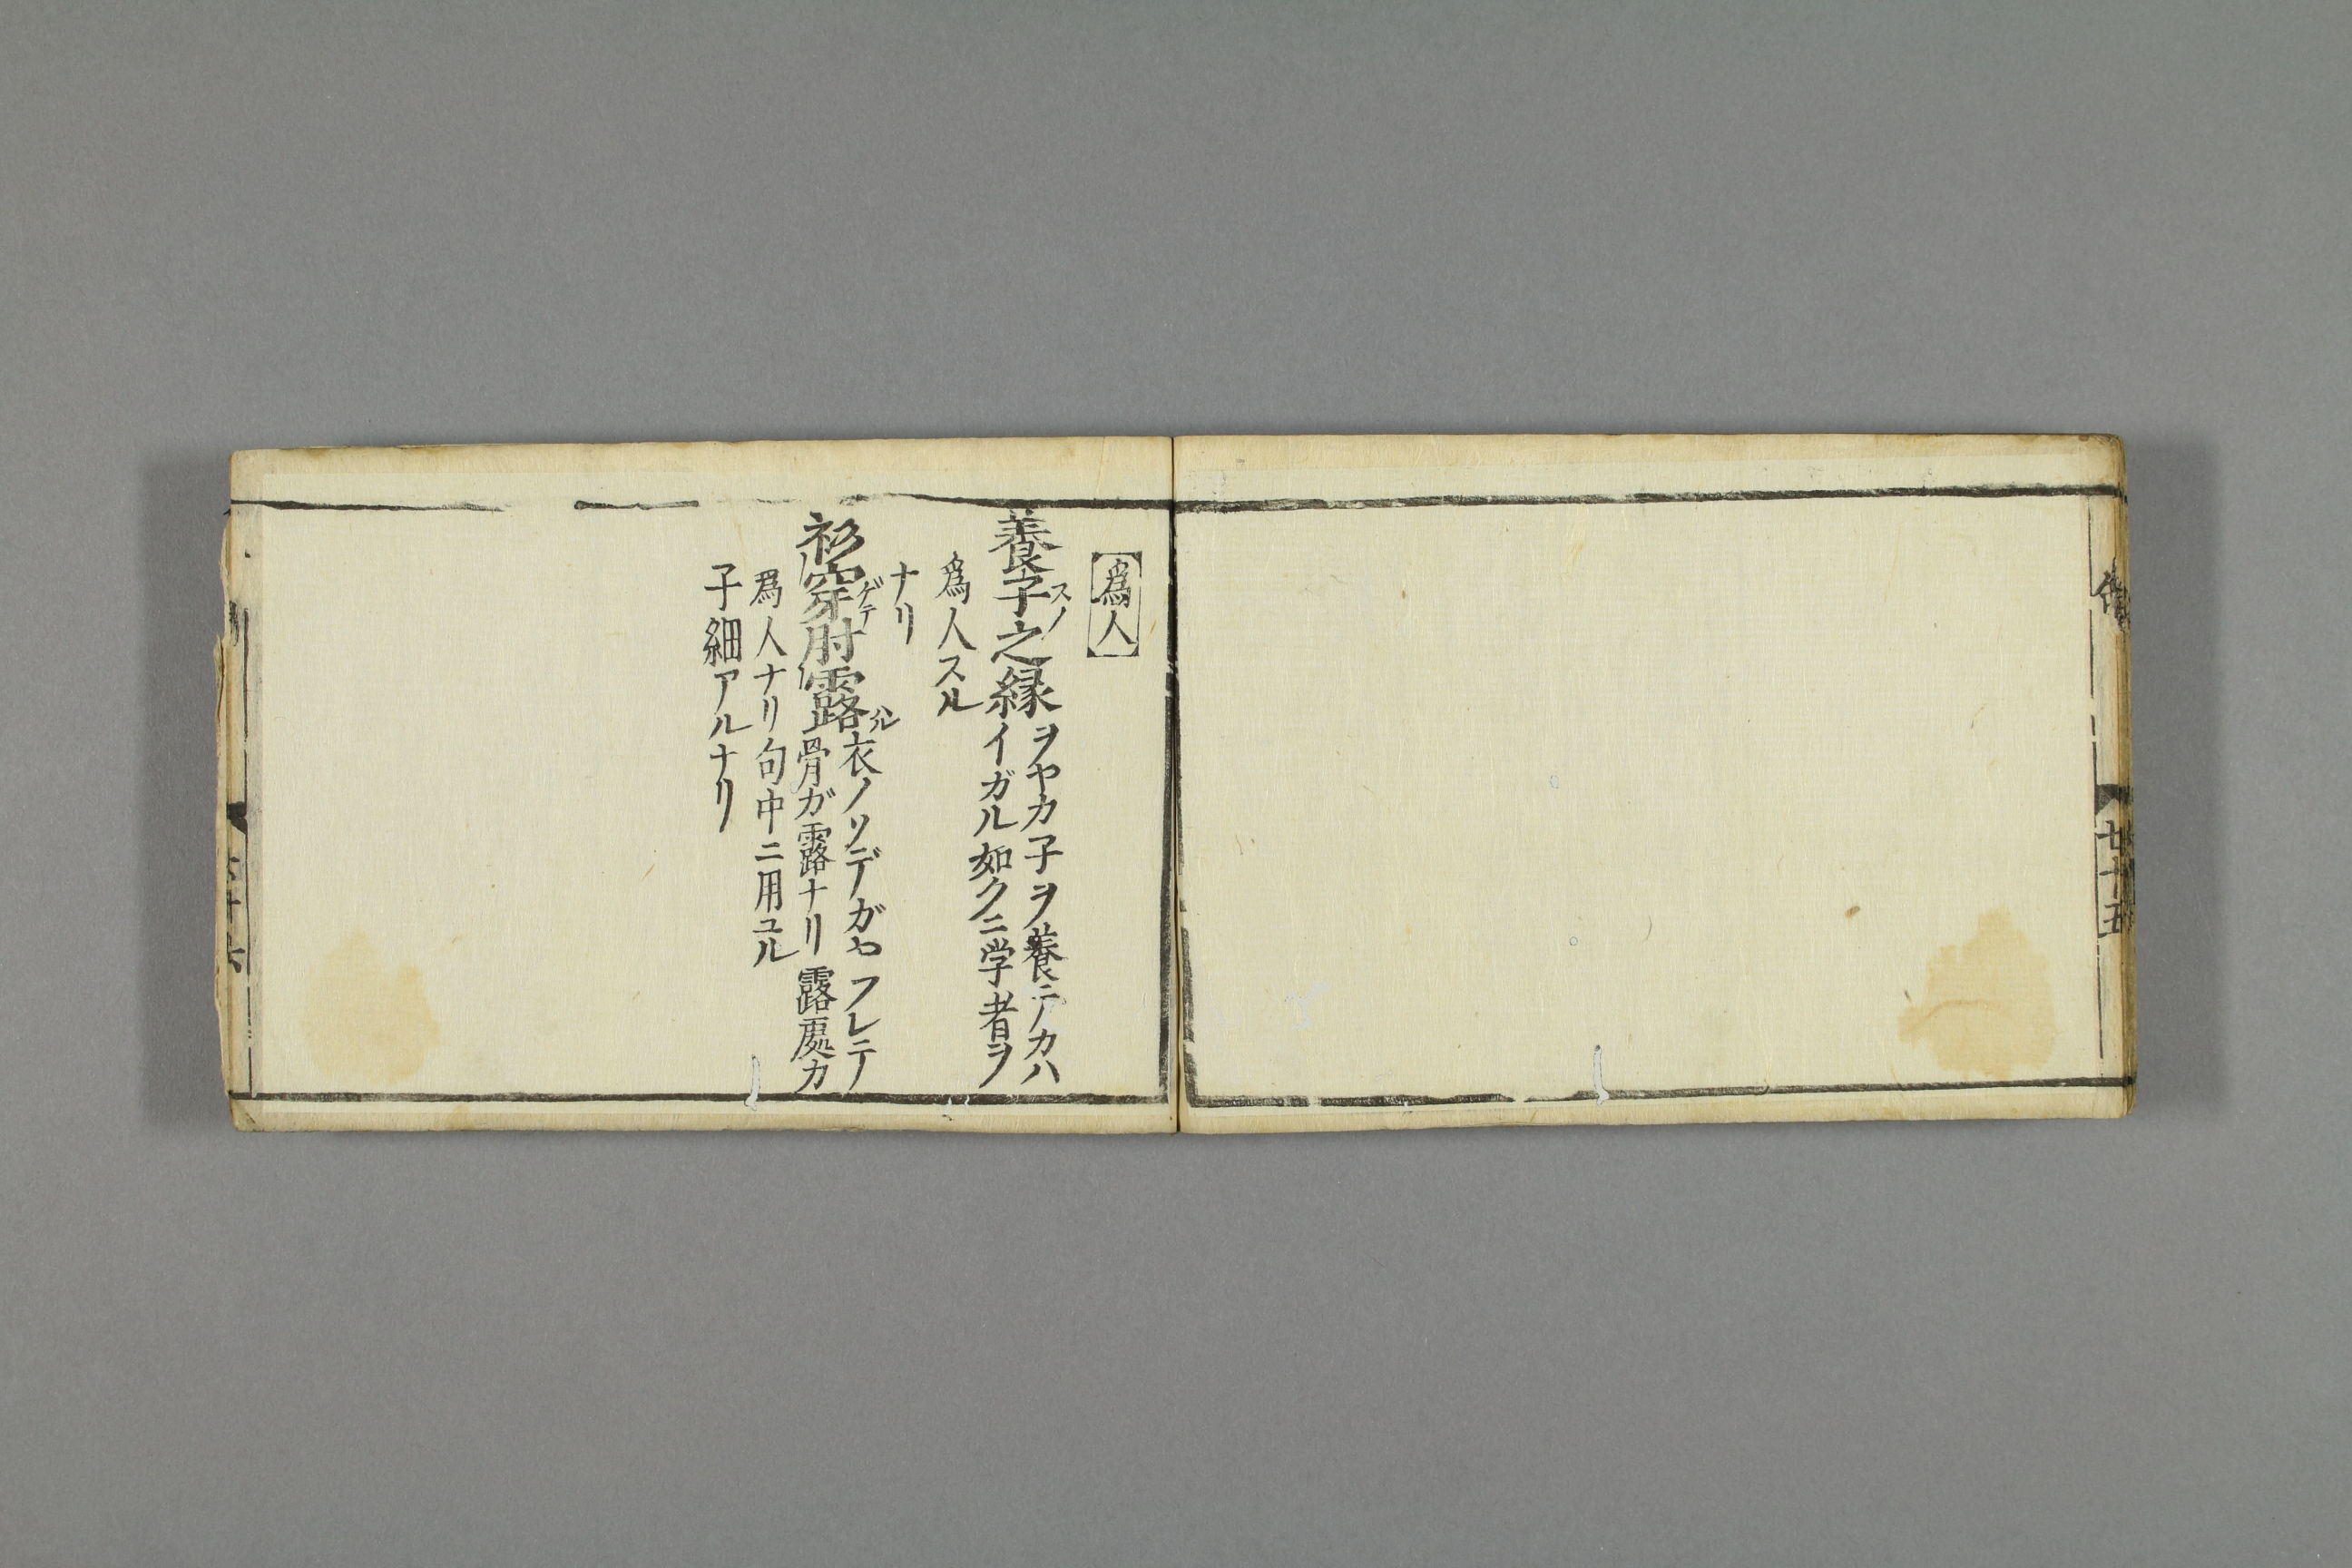 廿十五
為人
養子之縁 ヲヤカ子ヲ養テノカハ
イガル如クニ学者ヲ
為人スル
ナリ
衫穿肘露 衣ノソデガヤフレテ
骨ガ露ナリ露處カ
為人ナリ句中ニ用ユル
子細アルナリ